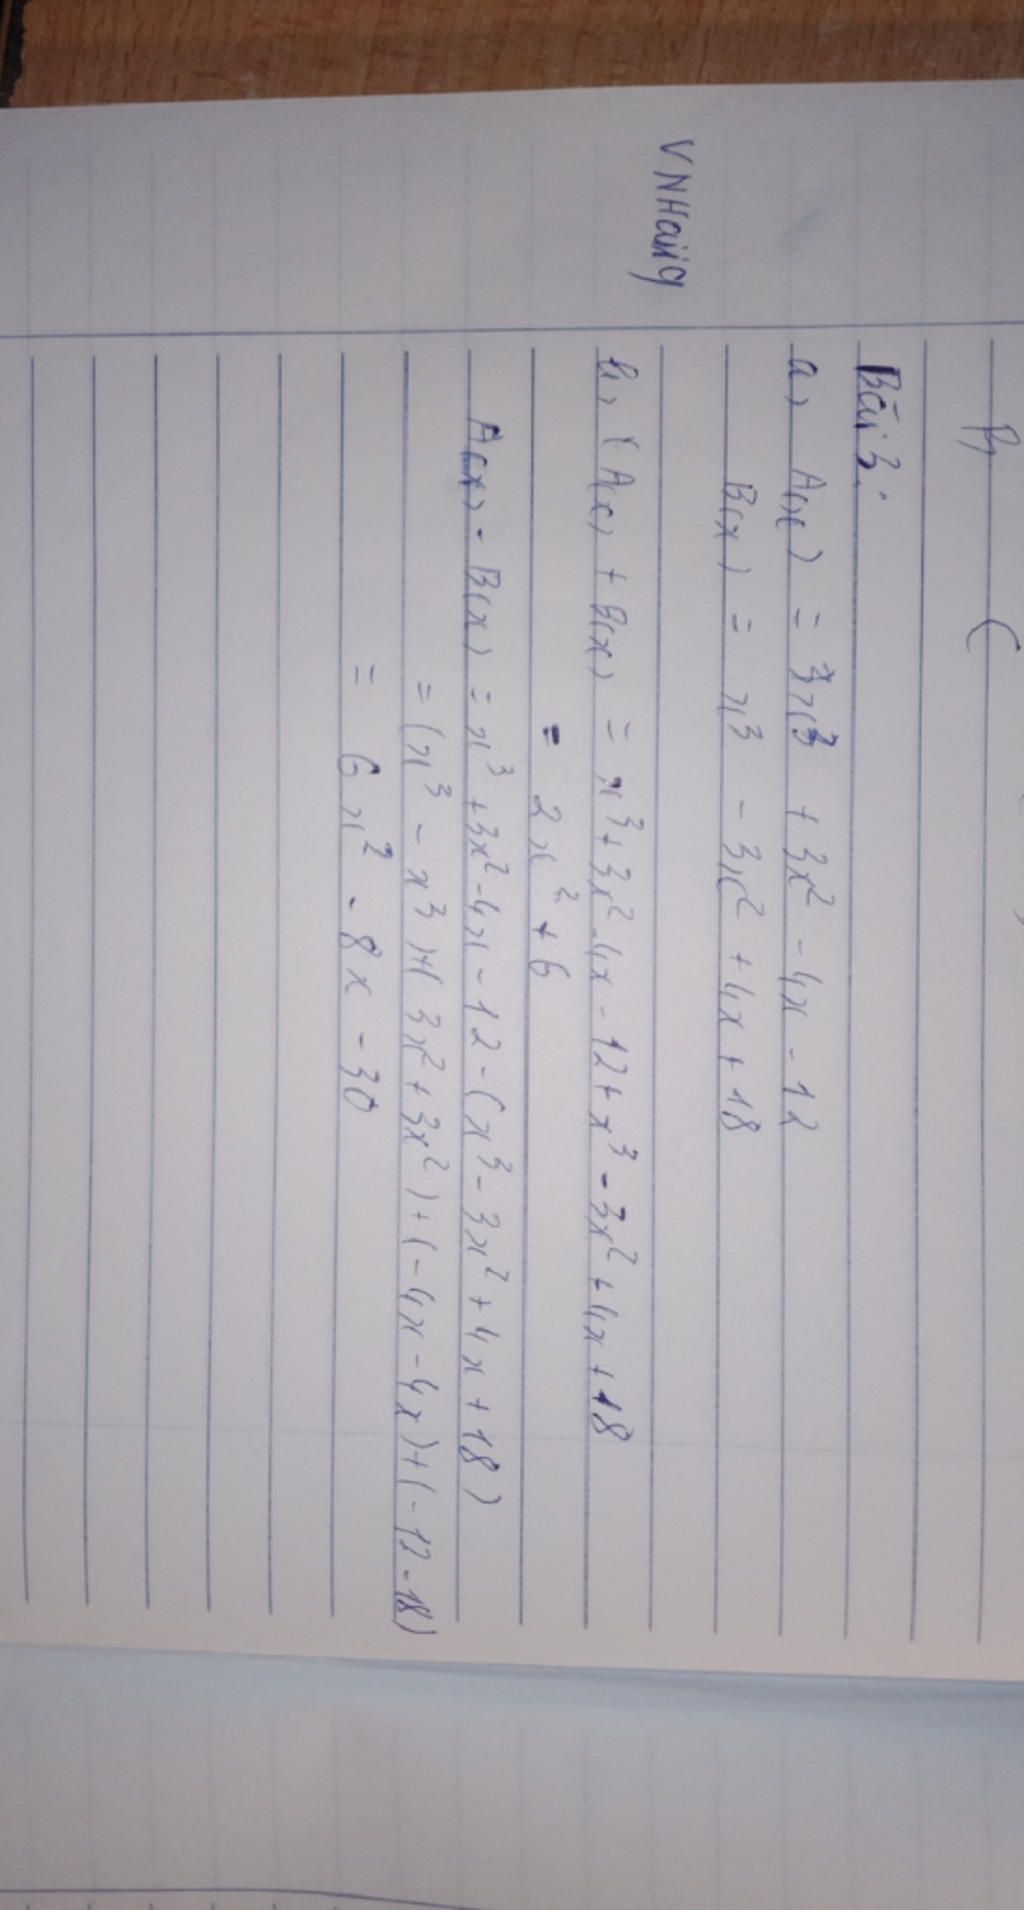 B (
Bài 3:
a, A(x) = 3x³ + 3x² - 4x - 12
B(x) = x³ - 3x² + 4x + 18
VNHaijg
b, (A(x) + B(x) = x³ + 3x² - 4x - 12 + x³ - 3x² + 4x + 18
= 2x² + 6
A(x) - B(x) = x³ + 3x² - 4x - 12 - (x³ - 3x² + 4x + 18)
= (x³ - x³) + ( 3x² + 3x²) + (- 4x - 4x) + (- 12 - 18)
= 6x² - 8x - 30